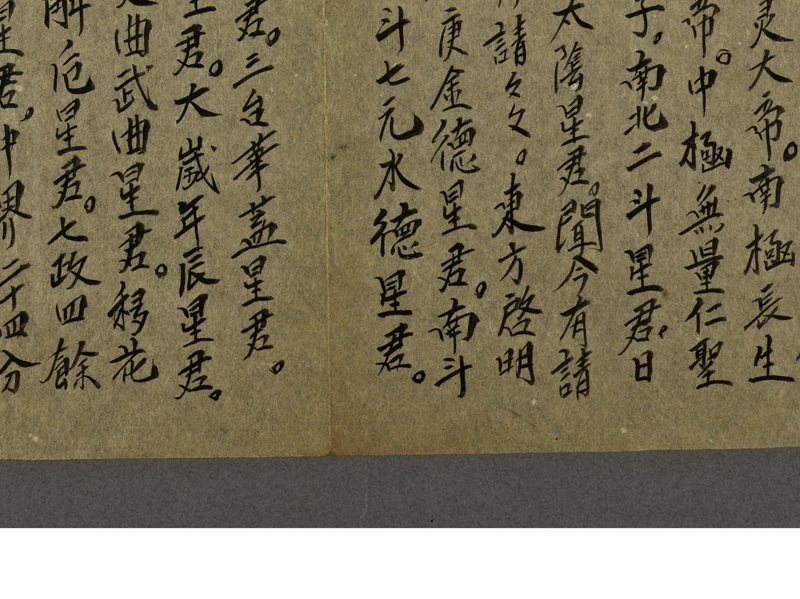 灵大帝。南極長生
帝。中極無量仁聖
子。南北二斗星君。日
太陰星君。聞今有請
請々々。東方啓明
庚金德星君。南斗
斗七元水德星君。
君。三台華蓋星君。
星君。大歲年辰星君。
曲武曲星君。移花
解厄星君。七政四餘
星君。中界二十四分